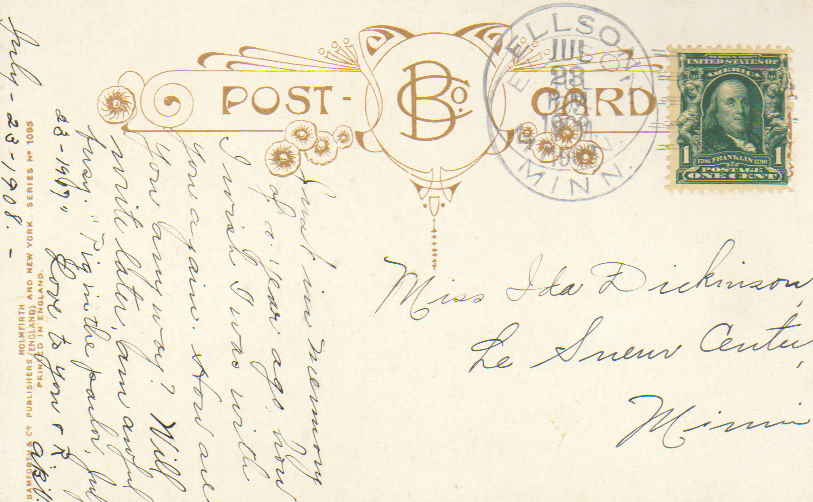 POST- BCo. CARD
ELLSON
JUL
23
1908
MINN.
UNITED STATES OF
AMERICA
1 FRANKLIN 1
POSTAGE
ONE CENT
Miss Ida Dickinson,
Le Sueur Center,
Minn
July - 23 - 1908. -
Just in memory
of a year ago. now
I wish I was with
you again. How are
you any way? Will
write later, am awful
busy. "Pig in the parlor, July
23 - 1907" Love to you & R.
BAMFORTH & CO PUBLISHERS (ENGLAND) AND NEW YORK SERIES No 1095
HOLMFIRTH
PRINTED IN ENGLAND.